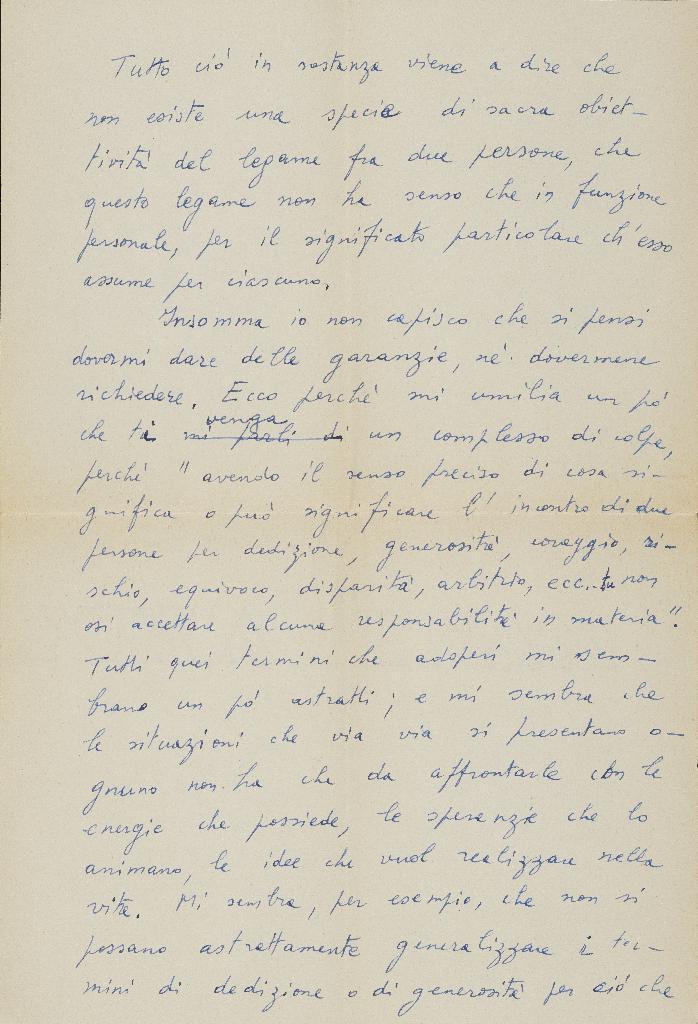 Tutto ció in sostanza viene a dire che
non esiste una specie di sacra obiet-
tività del legame fra due persone, che
questo legame non ha senso che in funzione
personale, per il significato particolare ch'esso
assume per ciascuno.
Insomma io non capisco che si pensi
dovermi dare delle garanzie, né dovermene
richiedere. Ecco perché mi umilia un pó
venga
che ti mi parli di un complesso di colpa,
perché "avendo il senso preciso di cosa si-
gnifica o può significare l'incontro di due
persone per dedizione, generosità, coraggio, ri-
schio, equivoco, disparità, arbitrio, ecc.. tu non
osi accettare alcuna responsabilità in materia".
Tutti quei termini che adoperi mi sem-
brano un pó astratti; e mi sembra che
le situazioni che via via si presentano o-
gnuno non ha che da affrontarle con le
energie che possiede, le speranzie che lo
animano, le idee che vuol realizzare nella
vita. Mi sembra, per esempio, che non si
possano astrattamente generalizzare i ter-
mini di dedizione o di generosità per ció che